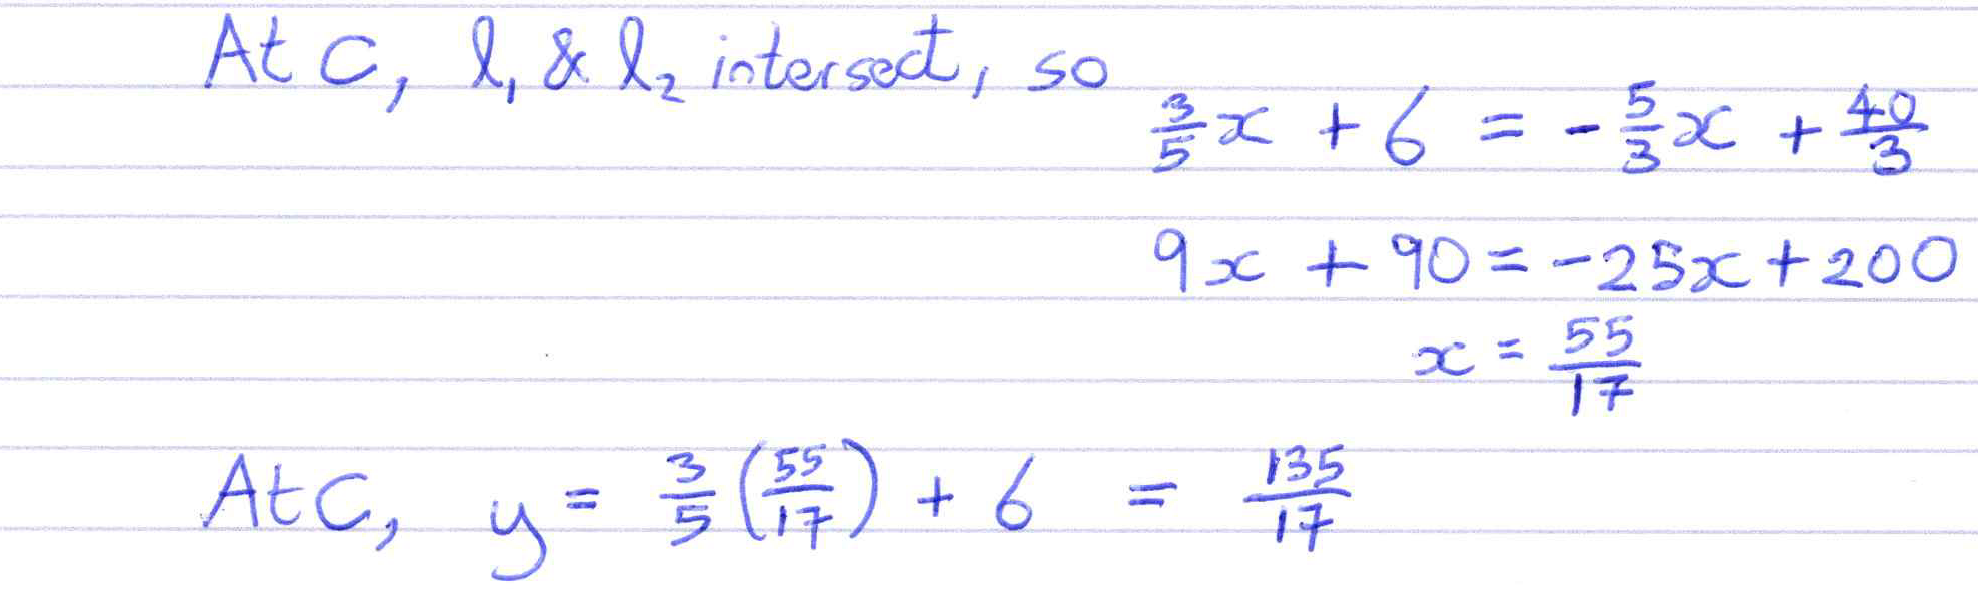 At C, l₁ & l₂ intersect, so
3/5 x + 6 = - 5/3 x + 40/3
9x + 90 = -25x + 200
x = 55/17
At C, y = 3/5 (55/17) + 6 = 135/17